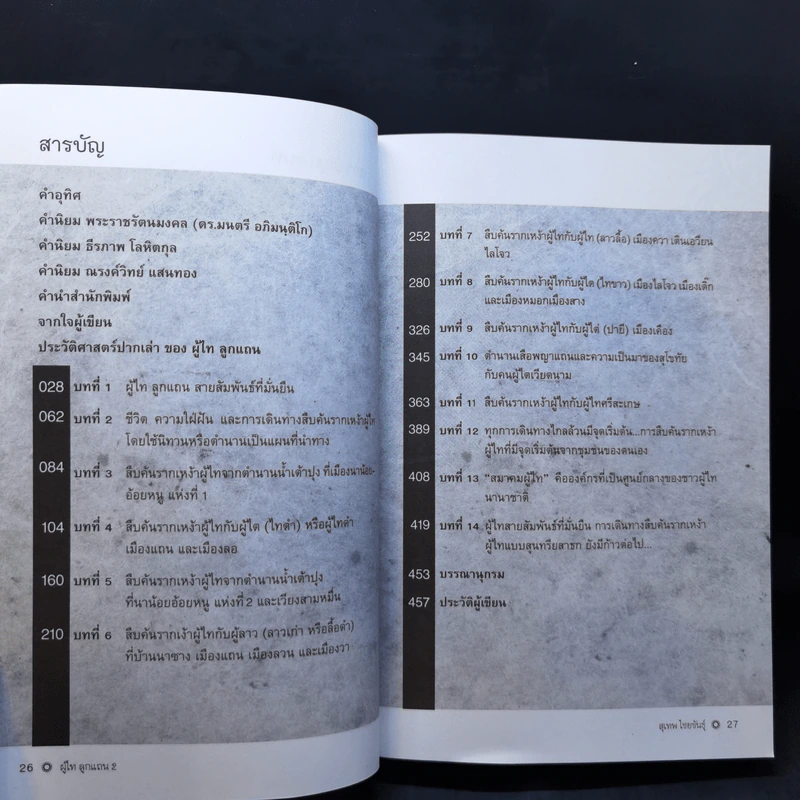 สารบัญ
คำอุทิศ
คำนิยม พระราชรัตนมงคล (ดร.มนตรี อภิมนฺติโก)
คำนิยม ธีรภาพ โลหิตกุล
คำนิยม ณรงค์วิทย์ แสนทอง
คำนำสำนักพิมพ์
จากใจผู้เขียน
ประวัติศาสตร์ปากเล่า ของ ผู้ไท ลูกแถน
028 บทที่ 1 ผู้ไท ลูกแถน สายสัมพันธ์ที่มั่นยืน
062 บทที่ 2 ชีวิต ความใฝ่ฝัน และการเดินทางสืบค้นรากเหง้าผู้ไท
โดยใช้นิทานหรือตำนานเป็นแผนที่นำทาง
084 บทที่ 3 สืบค้นรากเหง้าผู้ไทจากตำนานน้ำเต้าปุง ที่เมืองนาน้อย-
อ้อยหนู แห่งที่ 1
104 บทที่ 4 สืบค้นรากเหง้าผู้ไทกับผู้ไต (ไทดำ) หรือผู้ไทดำ
เมืองแถน และเมืองลอ
160 บทที่ 5 สืบค้นรากเหง้าผู้ไทจากตำนานน้ำเต้าปุง
ที่นาน้อยอ้อยหนู แห่งที่ 2 และเวียงสามหมื่น
210 บทที่ 6 สืบค้นรากเง้าผู้ไทกับผู้ลาว (ลาวเก่า หรือลื้อดำ)
ที่บ้านนาซาง เมืองแถน เมืองลวน และเมืองวา
26 ผู้ไท ลูกแถน 2
252 บทที่ 7 สืบค้นรากเหง้าผู้ไทกับผู้ไท (ลาวลื้อ) เมืองควา เดินเอวียน
ไลโจว
280 บทที่ 8 สืบค้นรากเหง้าผู้ไทกับผู้ไต (ไทขาว) เมืองไลโจว เมืองเติ๊ก
และเมืองหมอกเมืองสาง
326 บทที่ 9 สืบค้นรากเหง้าผู้ไทกับผู้ไต่ (ปายี) เมืองเคือง
345 บทที่ 10 ตำนานเสือพญาแถนและความเป็นมาของสุโขทัย
กับคนผู้ไตเวียดนาม
363 บทที่ 11 สืบค้นรากเหง้าผู้ไทกับผู้ไทศรีสะเกษ
389 บทที่ 12 ทุกการเดินทางไกลล้วนมีจุดเริ่มต้น...การสืบค้นรากเหง้า
ผู้ไทที่มีจุดเริ่มต้นจากชุมชนของตนเอง
408 บทที่ 13 "สมาคมผู้ไท" คือองค์กรที่เป็นศูนย์กลางของชาวผู้ไท
นานาชาติ
419 บทที่ 14 ผู้ไทสายสัมพันธ์ที่มั่นยืน การเดินทางสืบค้นรากเหง้า
ผู้ไทแบบสุนทรียสาธก ยังมีก้าวต่อไป...
453 บรรณานุกรม
457 ประวัติผู้เขียน
สุเทพ ไชยขันธุ์ 27